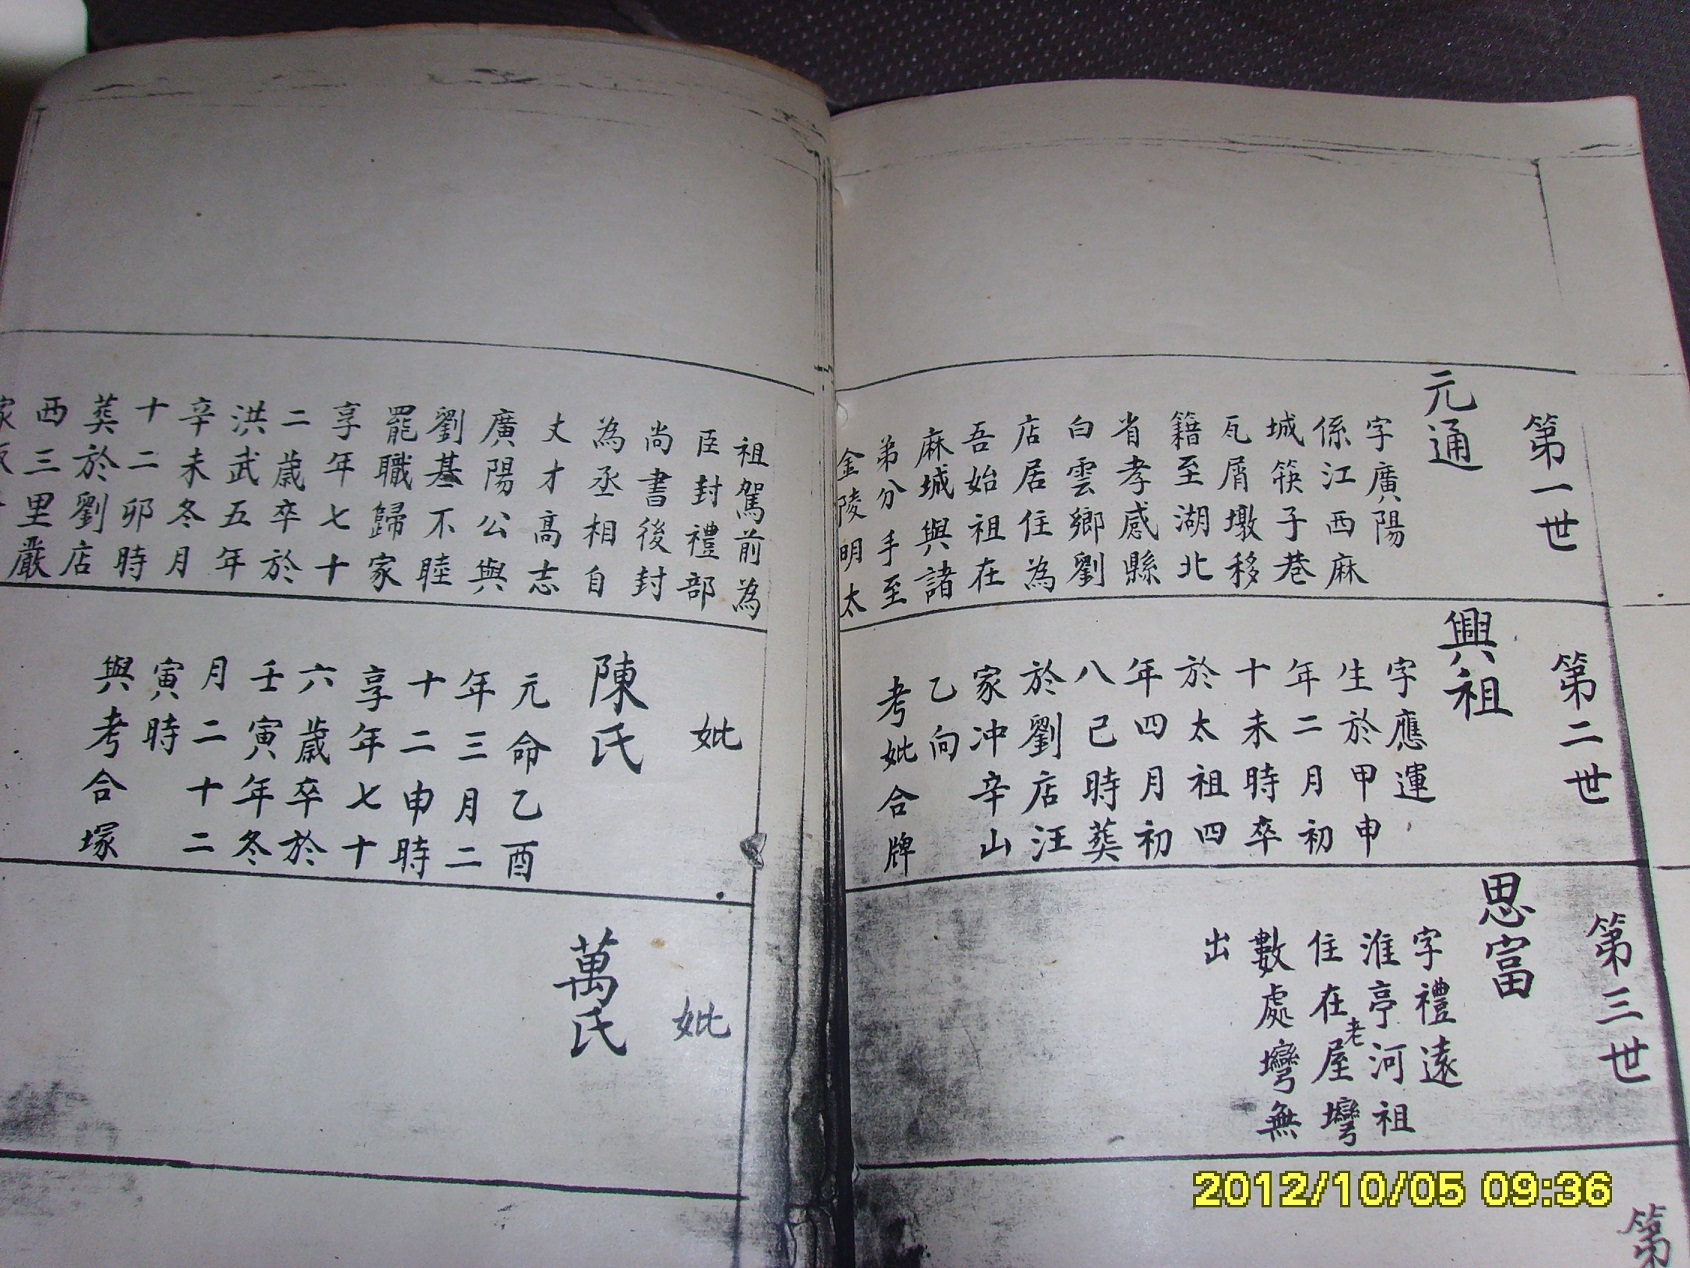 第一世
元通
字廣陽
係江西麻
城筷子巷
瓦屑墩移
籍至湖北
省孝感縣
白雲鄉劉
店居住為
吾始祖在
麻城與諸
弟分手至
金陵明太
祖駕前為
臣封禮部
尚書後封
為丞相自
丈才高志
廣陽公與
劉基不睦
罷職歸家
享年七十
二歲卒於
洪武五年
辛未冬月
十二卯時
葬於劉店
西三里嚴
家
第二世
興祖
字應運
生於甲申
年二月初
十未時卒
於太祖四
年四月初
八己時葬
於劉店汪
家冲辛山
乙向
考妣合牌
妣
陳氏
元命乙酉
年三月二
十二申時
享年七十
六歲卒於
壬寅年冬
月二十二
寅時
與考合塚
第三世
思富
字禮遠
淮亭河祖
住在老屋塆
數處塆無
出
妣
萬氏
第
2012/10/05 09:36